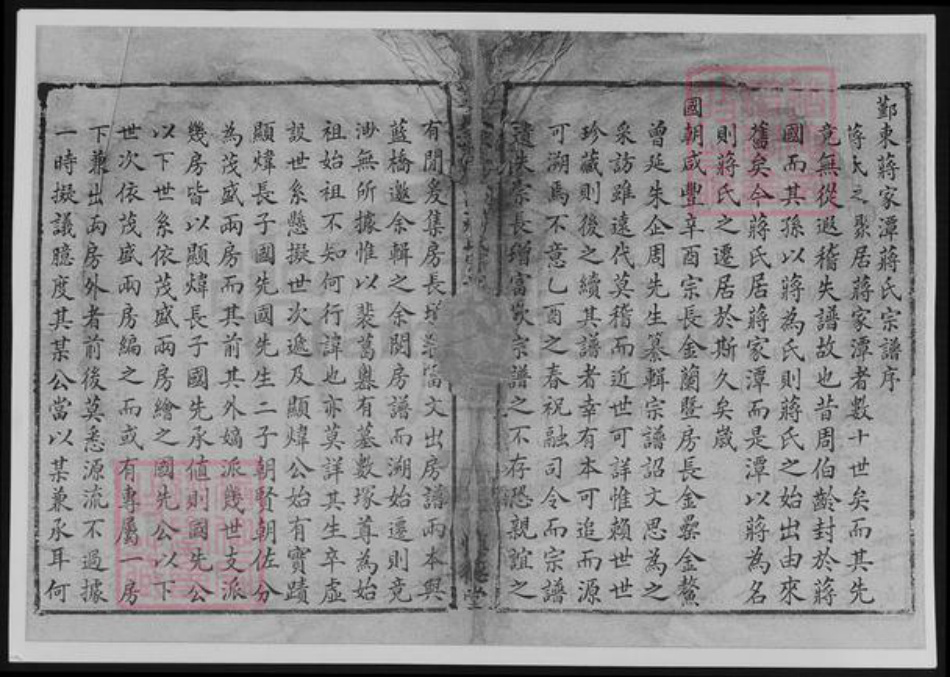 鄞東蔣家潭蔣氏宗譜序
蔣氏之聚居蔣家潭者數十世矣而其先
竟無從遐稽失譜故也昔周伯齡封於蔣
國而其孫以蔣為氏則蔣氏之始出由來
舊矣今蔣氏居蔣家潭而是潭以蔣為名
則蔣氏之遷居於斯久矣歲
國朝咸豐辛酉宗長金蘭暨房長金 金鰲
曾延朱企周先生纂輯宗譜詔文思為之
采訪雖遠代莫稽而近世可詳惟賴世世
珍藏則後之續其譜者幸有本可追而源
可溯焉不意乙酉之春祝融司令而宗譜
遺佚宗長增富 宗譜之不存恐親誼之
有間爰集房長 富文出房譜兩本與
藍橋邀余輯之余閱房譜而溯始遷則竟
渺無所據惟以裴葛嶴有墓數塚尊為始
祖始祖不知何行諱也亦莫詳其生卒虛
設世系懸擬世次遞及顯煒公始有實蹟
顯煒長子國先國先生二子朝賢朝佐分
為茂盛兩房而其前其外嫡派幾世支派
幾房皆以顯煒長子國先承值則國先公
以下世系依茂盛兩房繪之國先公以下
世次依茂盛兩房編之而或有專屬一房
下兼出兩房外者前後莫悉源流不過據
一時擬議臆度其某公當以某兼承耳何